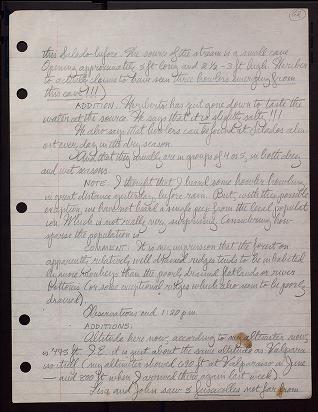 this Salado before. The source of the stream is a small cave
opening approximately 5 ft long and 2 1/2 - 3 ft high. Heriberto
to actually claims to have seen three howlers emerging from
this cave!!!)
ADDITION. Heriberto has just gone down to taste the
water at the source. He says that it is slightly salty!!!
He also says that howlers can be found at Salados alm-
ost every day in the dry season.
And that they usually are in groups of 4 or 5, in both dry
and wet seasons.
NOTE. I thought that I heard some howlers howling
in great distance yesterday before rain. (But, with this possible
exception, we have not heard a single peep from the local populat-
ion. Which is not really very surprising. Considering how
sparse the population is.
COMMENT. It is my impression that the forest on
apparently relatively well drained ridges tends to be inhabited
by more monkeys than the poorly drained flatlands or river
bottoms (or some exceptional ridges which also seem to be poorly
drained).
Observations end 1:20 p.m.
ADDITIONS:
Altitude here now, according to my altimeter now,
is 495 ft. I.E. it is just about the same altitude as Valparai-
so itself. (my altimeter showed 690 ft at Valparaiso in June
— and 800 ft when I arrived there again last week)
and John saw 3 fuscicollis not far from